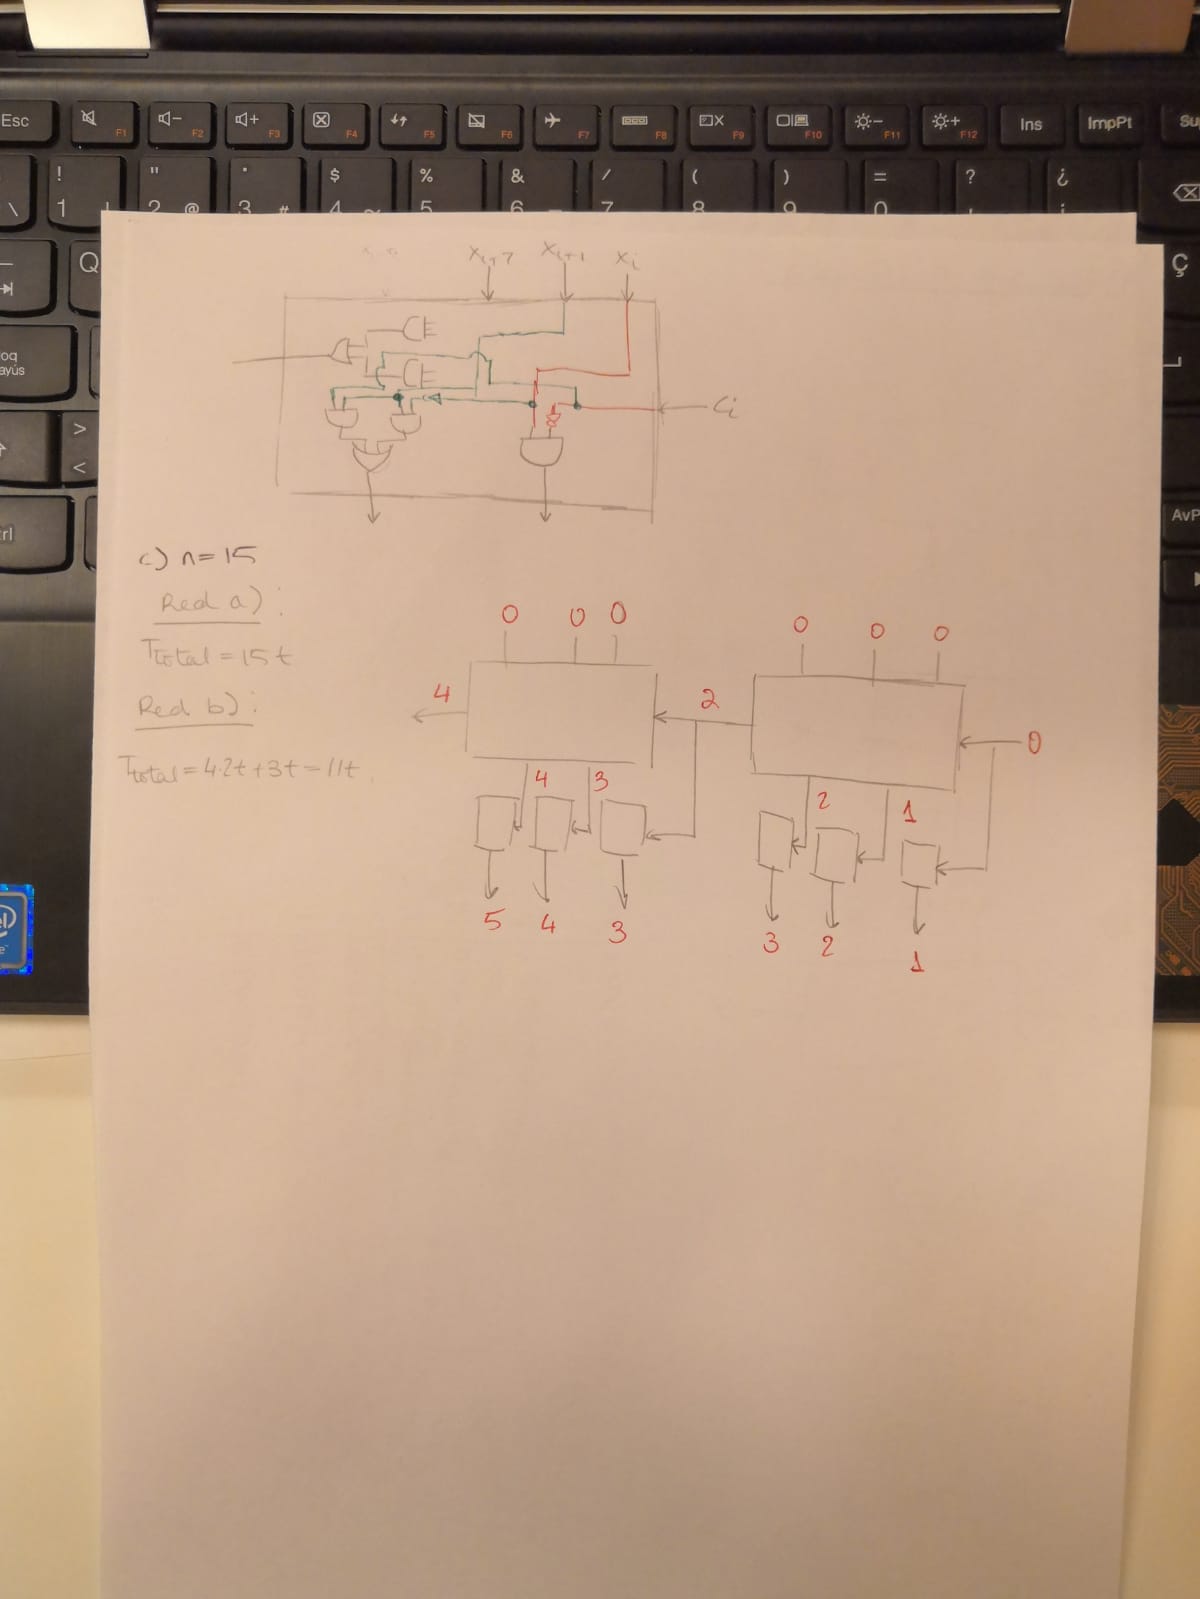 Esc F1 F2 F3 F4 F5 F6 F7 F8 F9 F10 F11 F12 Ins ImpPt
! " $ % & / ( ) = ? ¿
\ 1 2 @ 3 # 4 5 6 7 8 9 0
Q
> <
AvP
Xi+1 Xi
Ci
c) n=15
Red a):
Ttotal = 15t
Red b):
Ttotal = 4·2t+3t = 11t
0 0 0 0 0 0
4 2 0
4 3 2 1
5 4 3 3 2 1